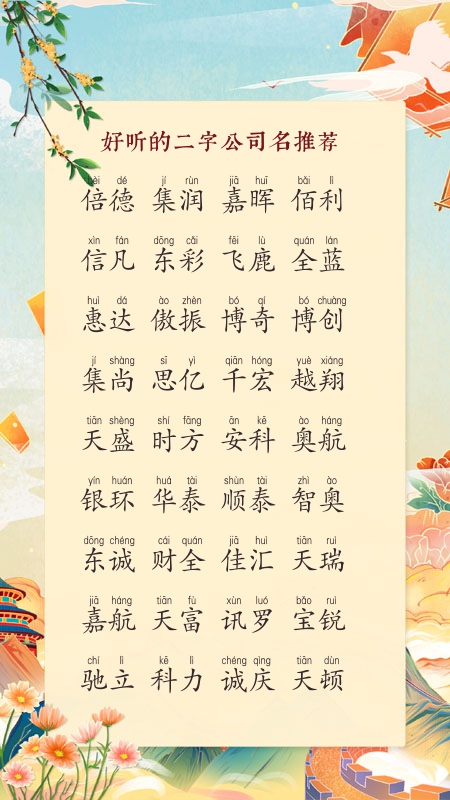 好听的二字公司名推荐
bèi dé jí rùn jiā huī bǎi lì
倍德 集润 嘉晖 佰利
xìn fán dōng cǎi fēi lù quán lán
信凡 东彩 飞鹿 全蓝
huì dá ào zhèn bó qí bó chuàng
惠达 傲振 博奇 博创
jí shàng sī yì qiān hóng yuè xiáng
集尚 思亿 千宏 越翔
tiān shèng shí fāng ān kē ào háng
天盛 时方 安科 奥航
yín huán huá tài shùn tài zhì ào
银环 华泰 顺泰 智奥
dōng chéng cái quán jiā huì tiān ruì
东诚 财全 佳汇 天瑞
jiā háng tiān fù xùn luó bǎo ruì
嘉航 天富 讯罗 宝锐
chí lì kē lì chéng qìng tiān dùn
驰立 科力 诚庆 天顿